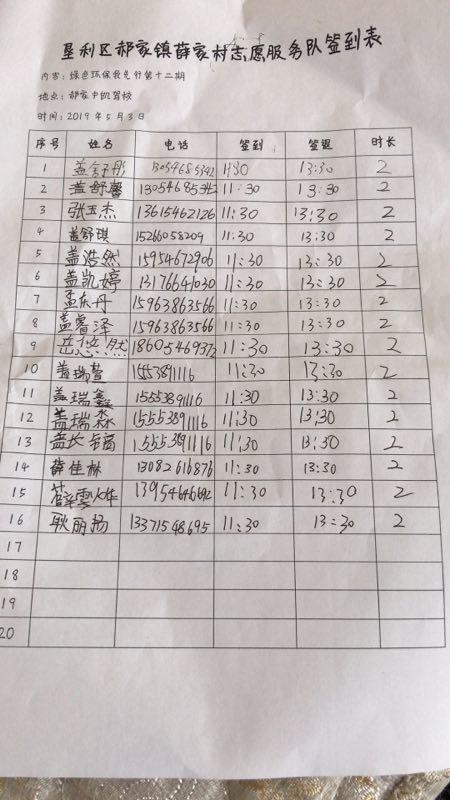 垦利区郝家镇薛家村志愿服务队签到表
内容: 绿色环保我先行第十二期
地点: 郝家中凯驾校
时间: 2019年5月3日
序号 姓名 电话 签到 签退 时长
1 盖舒彤 13054685342 11:30 13:30 2
2 盖舒馨 13054685342 11:30 13:30 2
3 张玉杰 13615462126 11:30 13:30 2
4 盖舒琪 15266058209 11:30 13:30 2
5 盖浩然 15954672906 11:30 13:30 2
6 盖凯婷 13176641030 11:30 13:30 2
7 孟庆丹 15963863566 11:30 13:30 2
8 盖睿泽 15963863566 11:30 13:30 2
9 岳悠然 18605469372 11:30 13:30 2
10 盖瑞萱 1553891116 11:30 13:30 2
11 盖瑞鑫 15553891116 11:30 13:30 2
12 盖瑞淼 15553891116 11:30 13:30 2
13 盖长镝 15553891116 11:30 13:30 2
14 薛佳林 13082616876 11:30 13:30 2
15 薛雲烨 13954646692 11:30 13:30 2
16 耿丽扬 13371548695 11:30 13:30 2
17
18
19
20